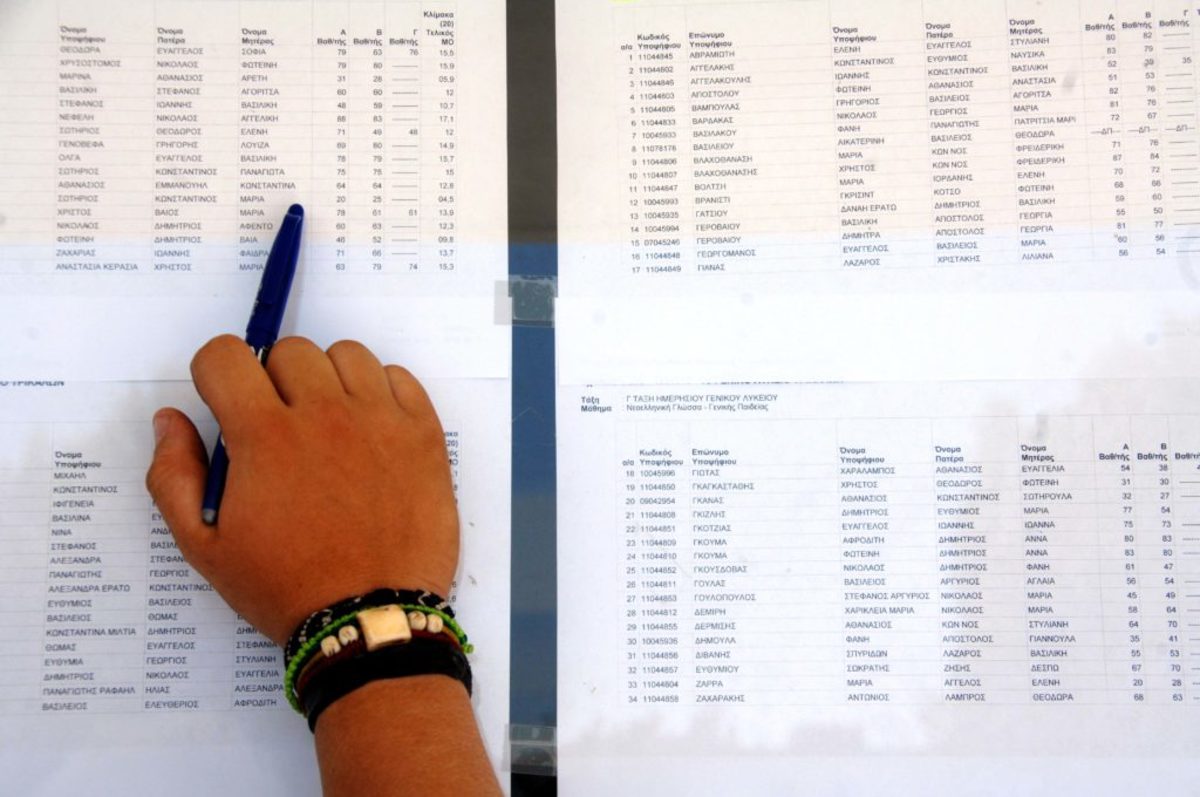 Κλίμακα
(20)
Όνομα Όνομα Όνομα Α Β Γ Τελικός
Υποψήφιου Πατέρα Μητέρας Βαθ/τής Βαθ/τής Βαθ/τής ΜΟ
ΘΕΟΔΩΡΑ ΕΥΑΓΓΕΛΟΣ ΣΟΦΙΑ 79 63 76 15,5
ΧΡΥΣΟΣΤΟΜΟΣ ΝΙΚΟΛΑΟΣ ΦΩΤΕΙΝΗ 79 80 -------- 15,9
ΜΑΡΙΝΑ ΑΘΑΝΑΣΙΟΣ ΑΡΕΤΗ 31 28 -------- 05,9
ΒΑΣΙΛΙΚΗ ΣΤΕΦΑΝΟΣ ΑΓΟΡΙΤΣΑ 60 60 -------- 12
ΣΤΕΦΑΝΟΣ ΙΩΑΝΝΗΣ ΒΑΣΙΛΙΚΗ 48 59 -------- 10,7
ΝΕΦΕΛΗ ΝΙΚΟΛΑΟΣ ΑΓΓΕΛΙΚΗ 88 83 -------- 17,1
ΣΩΤΗΡΙΟΣ ΘΕΟΔΩΡΟΣ ΕΛΕΝΗ 71 49 48 12
ΓΕΝΟΒΕΦΑ ΓΡΗΓΟΡΗΣ ΛΟΥΙΖΑ 69 80 -------- 14,9
ΟΛΓΑ ΕΥΑΓΓΕΛΟΣ ΒΑΣΙΛΙΚΗ 78 79 -------- 15,7
ΣΩΤΗΡΙΟΣ ΚΩΝΣΤΑΝΤΙΝΟΣ ΠΑΝΑΓΙΩΤΑ 75 75 -------- 15
ΑΘΑΝΑΣΙΟΣ ΕΜΜΑΝΟΥΗΛ ΚΩΝΣΤΑΝΤΙΝΑ 64 64 -------- 12,8
ΣΩΤΗΡΙΟΣ ΚΩΝΣΤΑΝΤΙΝΟΣ ΜΑΡΙΑ 20 25 -------- 04,5
ΧΡΙΣΤΟΣ ΒΑΙΟΣ ΜΑΡΙΑ 78 61 61 13,9
ΝΙΚΟΛΑΟΣ ΔΗΜΗΤΡΙΟΣ ΑΦΕΝΤΟ 60 63 -------- 12,3
ΦΩΤΕΙΝΗ ΔΗΜΗΤΡΙΟΣ ΒΑΙΑ 46 52 -------- 09,8
ΖΑΧΑΡΙΑΣ ΙΩΑΝΝΗΣ ΦΑΙΔΡΑ 71 66 -------- 13,7
ΑΝΑΣΤΑΣΙΑ ΚΕΡΑΣΙΑ ΧΡΗΣΤΟΣ ΜΑΡΙΑ 63 79 74 15,3
Όνομα
Υποψήφιου
ΜΙΧΑΗΛ
ΚΩΝΣΤΑΝΤΙΝΟΣ
ΙΦΙΓΕΝΕΙΑ
ΒΑΣΙΛΙΝΑ
ΝΙΝΑ
ΣΤΕΦΑΝΟΣ
ΑΛΕΞΑΝΔΡΑ
ΠΑΝΑΓΙΩΤΗΣ ΓΕΩΡΓΙΟΣ
ΑΛΕΞΑΝΔΡΑ ΕΡΑΤΩ ΚΩΝΣΤΑΝΤΙΝΟΣ
ΕΥΘΥΜΙΟΣ ΒΑΣΙΛΕΙΟΣ
ΒΑΣΙΛΕΙΟΣ ΘΩΜΑΣ
ΚΩΝΣΤΑΝΤΙΝΑ ΜΙΛΤΙΑ ΔΗΜΗΤΡΙΟΣ
ΘΩΜΑΣ ΕΥΑΓΓΕΛΟΣ ΣΤΕΦΑΝΙΑ
ΕΥΘΥΜΙΑ ΓΕΩΡΓΙΟΣ ΣΤΥΛΙΑΝΗ
ΔΗΜΗΤΡΙΟΣ ΝΙΚΟΛΑΟΣ ΕΥΑΓΓΕΛΙΑ
ΠΑΝΑΓΙΩΤΗΣ ΡΑΦΑΗΛ ΗΛΙΑΣ ΑΛΕΞΑΝΔΡΑ
ΒΑΣΙΛΕΙΟΣ ΕΛΕΥΘΕΡΙΟΣ ΑΦΡΟΔΙΤΗ
Κωδικός Επώνυμο Όνομα Όνομα Όνομα Α Β Γ
α/α Υποψήφιου Υποψήφιου Υποψήφιου Πατέρα Μητέρας Βαθ/τής Βαθ/τής Βαθ/τής
1 11044845 ΑΒΡΑΜΙΩΤΗ ΕΛΕΝΗ ΕΥΑΓΓΕΛΟΣ ΣΤΥΛΙΑΝΗ 80 82 --------
2 11044802 ΑΓΓΕΛΑΚΗΣ ΚΩΝΣΤΑΝΤΙΝΟΣ ΕΥΘΥΜΙΟΣ ΝΑΥΣΙΚΑ 83 79 --------
3 11044846 ΑΓΓΕΛΑΚΟΥΛΗΣ ΙΩΑΝΝΗΣ ΚΩΝΣΤΑΝΤΙΝΟΣ ΒΑΣΙΛΙΚΗ 52 39 35
4 11044803 ΑΠΟΣΤΟΛΟΥ ΦΩΤΕΙΝΗ ΑΘΑΝΑΣΙΟΣ ΑΝΑΣΤΑΣΙΑ 51 53 --------
5 11044805 ΒΑΜΠΟΥΛΑΣ ΓΡΗΓΟΡΙΟΣ ΒΑΣΙΛΕΙΟΣ ΑΓΟΡΙΤΣΑ 82 76 --------
6 11044833 ΒΑΡΔΑΚΑΣ ΝΙΚΟΛΑΟΣ ΓΕΩΡΓΙΟΣ ΜΑΡΙΑ 81 76 --------
7 10045933 ΒΑΣΙΛΑΚΟΥ ΦΑΝΗ ΠΑΝΑΓΙΩΤΗΣ ΠΑΤΡΙΤΣΙΑ ΜΑΡΙ 72 67 --------
8 11078176 ΒΑΣΙΛΕΙΟΥ ΑΙΚΑΤΕΡΙΝΗ ΒΑΣΙΛΕΙΟΣ ΘΕΟΔΩΡΑ ---ΔΠ--- ---ΔΠ--- ---ΔΠ---
9 11044806 ΒΛΑΧΟΘΑΝΑΣΗ ΜΑΡΙΑ ΚΩΝ ΝΟΣ ΦΡΕΙΔΕΡΙΚΗ 71 76 --------
10 11044807 ΒΛΑΧΟΘΑΝΑΣΗΣ ΧΡΗΣΤΟΣ ΚΩΝ ΝΟΣ ΦΡΕΙΔΕΡΙΚΗ 87 84 --------
11 11044847 ΒΟΛΤΣΗ ΜΑΡΙΑ ΙΟΡΔΑΝΗΣ ΕΛΕΝΗ 70 72 --------
12 10045993 ΒΡΑΝΙΣΤΙ ΓΚΡΙΣΙΝΤ ΚΟΤΣΟ ΦΩΤΕΙΝΗ 68 66 --------
13 10045935 ΓΑΤΣΙΟΥ ΔΑΝΑΗ ΕΡΑΤΩ ΔΗΜΗΤΡΙΟΣ ΒΑΣΙΛΙΚΗ 59 60 --------
14 10045994 ΓΕΡΟΒΑΙΟΥ ΒΑΣΙΛΙΚΗ ΑΠΟΣΤΟΛΟΣ ΓΕΩΡΓΙΑ 55 50 --------
15 07045246 ΓΕΡΟΒΑΙΟΥ ΔΗΜΗΤΡΑ ΑΠΟΣΤΟΛΟΣ ΓΕΩΡΓΙΑ 81 77 --------
16 11044848 ΓΕΩΡΓΟΜΑΝΟΣ ΕΥΑΓΓΕΛΟΣ ΒΑΣΙΛΕΙΟΣ ΜΑΡΙΑ 60 56 --------
17 11044849 ΓΙΑΝΑΣ ΛΑΖΑΡΟΣ ΧΡΙΣΤΑΚΗΣ ΛΙΛΙΑΝΑ 56 54 --------
Τάξη : Γ ΤΑΞΗ ΗΜΕΡΗΣΙΟΥ ΓΕΝΙΚΟΥ ΛΥΚΕΙΟΥ
Μάθημα : Νεοελληνική Γλώσσα - Γενικής Παιδείας
Κωδικός Επώνυμο Όνομα Όνομα Όνομα Α Β
α/α Υποψήφιου Υποψήφιου Υποψήφιου Πατέρα Μητέρας Βαθ/τής Βαθ/τής
18 10045996 ΓΙΩΤΑΣ ΧΑΡΑΛΑΜΠΟΣ ΑΘΑΝΑΣΙΟΣ ΕΥΑΓΓΕΛΙΑ 54 38
19 11044850 ΓΚΑΓΚΑΣΤΑΘΗΣ ΧΡΗΣΤΟΣ ΘΕΟΔΩΡΟΣ ΦΩΤΕΙΝΗ 31 30
20 09042954 ΓΚΑΝΑΣ ΑΘΑΝΑΣΙΟΣ ΚΩΝΣΤΑΝΤΙΝΟΣ ΣΩΤΗΡΟΥΛΑ 32 27
21 11044808 ΓΚΙΖΛΗΣ ΔΗΜΗΤΡΙΟΣ ΕΥΘΥΜΙΟΣ ΜΑΡΙΑ 77 54
22 11044851 ΓΚΟΤΖΙΑΣ ΕΥΑΓΓΕΛΟΣ ΙΩΑΝΝΗΣ ΙΩΑΝΝΑ 75 73
23 11044809 ΓΚΟΥΜΑ ΑΦΡΟΔΙΤΗ ΔΗΜΗΤΡΙΟΣ ΑΝΝΑ 80 83
24 11044810 ΓΚΟΥΜΑ ΦΩΤΕΙΝΗ ΔΗΜΗΤΡΙΟΣ ΑΝΝΑ 83 80
25 11044852 ΓΚΟΥΣΔΟΒΑΣ ΝΙΚΟΛΑΟΣ ΔΗΜΗΤΡΙΟΣ ΦΑΝΗ 61 47
26 11044811 ΓΟΥΛΑΣ ΒΑΣΙΛΕΙΟΣ ΑΡΓΥΡΙΟΣ ΑΓΛΑΙΑ 56 54
27 11044853 ΓΟΥΛΟΠΟΥΛΟΣ ΣΤΕΦΑΝΟΣ ΑΡΓΥΡΙΟΣ ΝΙΚΟΛΑΟΣ ΜΑΡΙΑ 45 49
28 11044812 ΔΕΜΙΡΗ ΧΑΡΙΚΛΕΙΑ ΜΑΡΙΑ ΝΙΚΟΛΑΟΣ ΜΑΡΙΑ 58 64
29 11044855 ΔΕΡΜΙΣΗΣ ΑΘΑΝΑΣΙΟΣ ΚΩΝ ΝΟΣ ΣΤΥΛΙΑΝΗ 64 70
30 10045936 ΔΗΜΟΥΛΑ ΦΑΝΗ ΑΠΟΣΤΟΛΟΣ ΓΙΑΝΝΟΥΛΑ 35 41
31 11044856 ΔΙΒΑΝΗΣ ΣΠΥΡΙΔΩΝ ΛΑΖΑΡΟΣ ΒΑΣΙΛΙΚΗ 55 53
32 11044857 ΕΥΘΥΜΙΟΥ ΣΩΚΡΑΤΗΣ ΖΗΣΗΣ ΔΕΣΠΩ 67 70
33 11044804 ΖΑΡΡΑ ΜΑΡΙΑ ΑΓΓΕΛΟΣ ΕΛΕΝΗ 20 28
34 11044858 ΖΑΧΑΡΑΚΗΣ ΑΝΤΩΝΙΟΣ ΛΑΜΠΡΟΣ ΘΕΟΔΩΡΑ 68 63